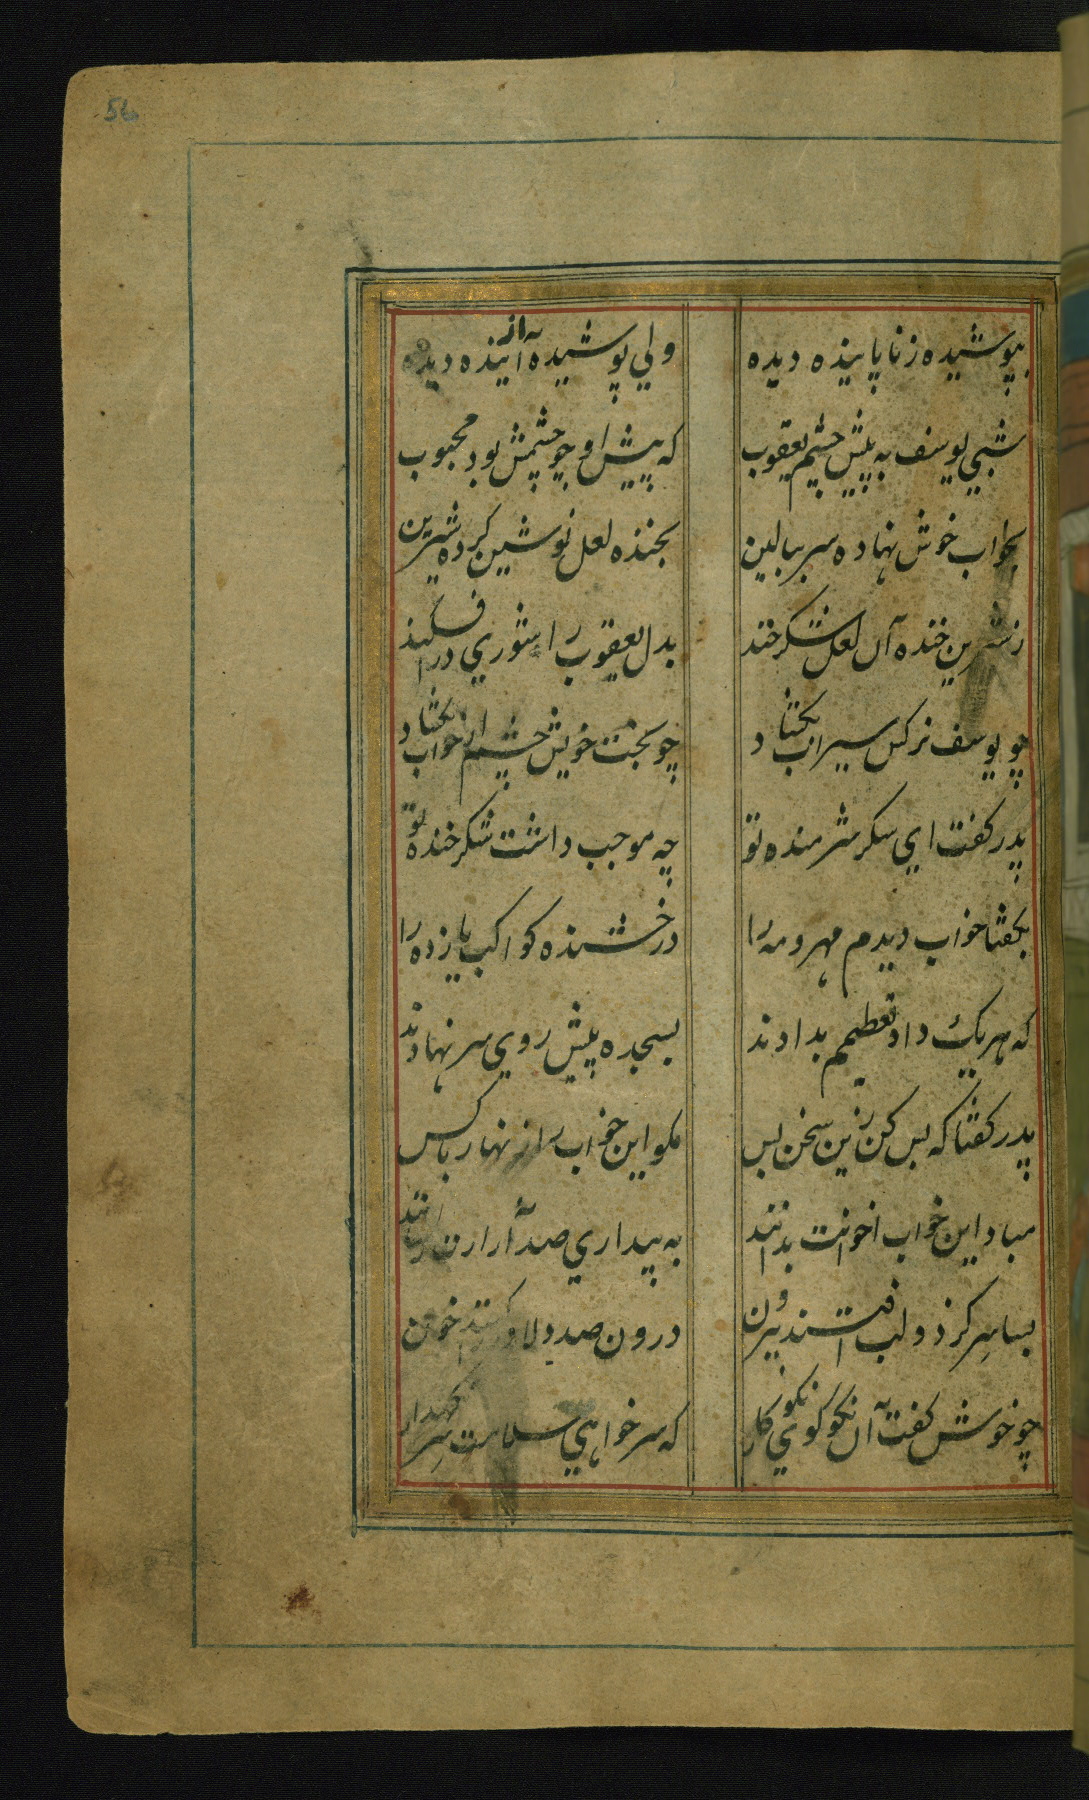 56
بپوشیده ز نا پاینده دیده ولی پوشیده از آینده دیده
شبی یوسف به پیش چشم یعقوب که پیش او چو چشمش بود محبوب
بخواب خوش نهاده سر ببالین بخنده لعل نوشین کرده شیرین
ز شیرین خنده آن لعل شکرخند بدل یعقوب را شوری در افکند
چو یوسف نرکس سیراب بکشاد چو بخت خویش چشم از خواب بکشاد
پدر کفت ای شکر شرمنده تو چه موجب داشت شکر خنده تو
بکفتا خواب دیدم مهر و مه را درخشنده کواکب یازده را
که هر یک داد تعظیمم بدادند بسجده پیش روی سر نهادند
پدر کفتا که بس کن زین سخن بس مکو این خواب را زنهار با کس
مباد این خواب اخوانت بدانند به بیداری صد آزارت رسانند
بسا سر کز دو لب افتند بیرون درون صد دلاور خون
چو خوش کفت آن نکو کوی نکو کار که سر خواهی سلامت سر نکهدار